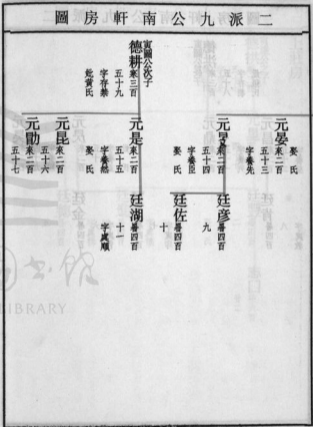 二派九公南軒房圖
寅圖公次子
德耕寒三百
五十九
妣黃氏
娶氏
元晏來二百
五十三
字養先
元 來二百
五十四
字養臣
娶氏
元是來二百
五十五
字養
娶氏
元昆來二百
五十六
元勛來二百
五十七
廷彥暑四百
九
廷佐暑四百
十
廷湖暑四百
十一
LIBRARY